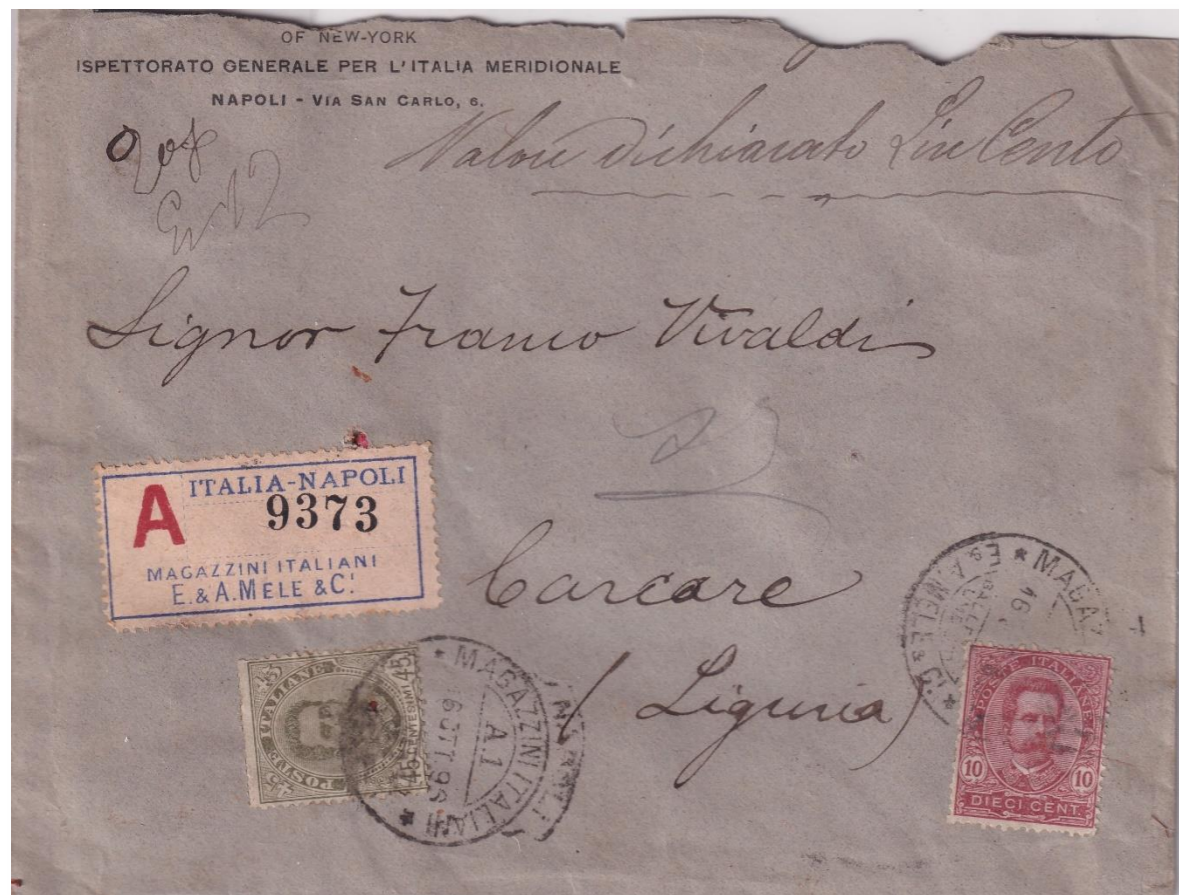 OF NEW-YORK
ISPETTORATO GENERALE PER L'ITALIA MERIDIONALE
NAPOLI - VIA SAN CARLO, 6.
Valore dichiarato Lire Cento
Signor Franco Vivaldi
A
ITALIA-NAPOLI
9373
MAGAZZINI ITALIANI
E. & A. MELE & C.i
Carcare
(Liguria)
POSTE ITALIANE
45 CENTESIMI 45
MAGAZZINI ITALIANI
A.1
OTT
MAGAZ
E. & A. MELE & C.
POSTE ITALIANE
10 10
DIECI CENT.